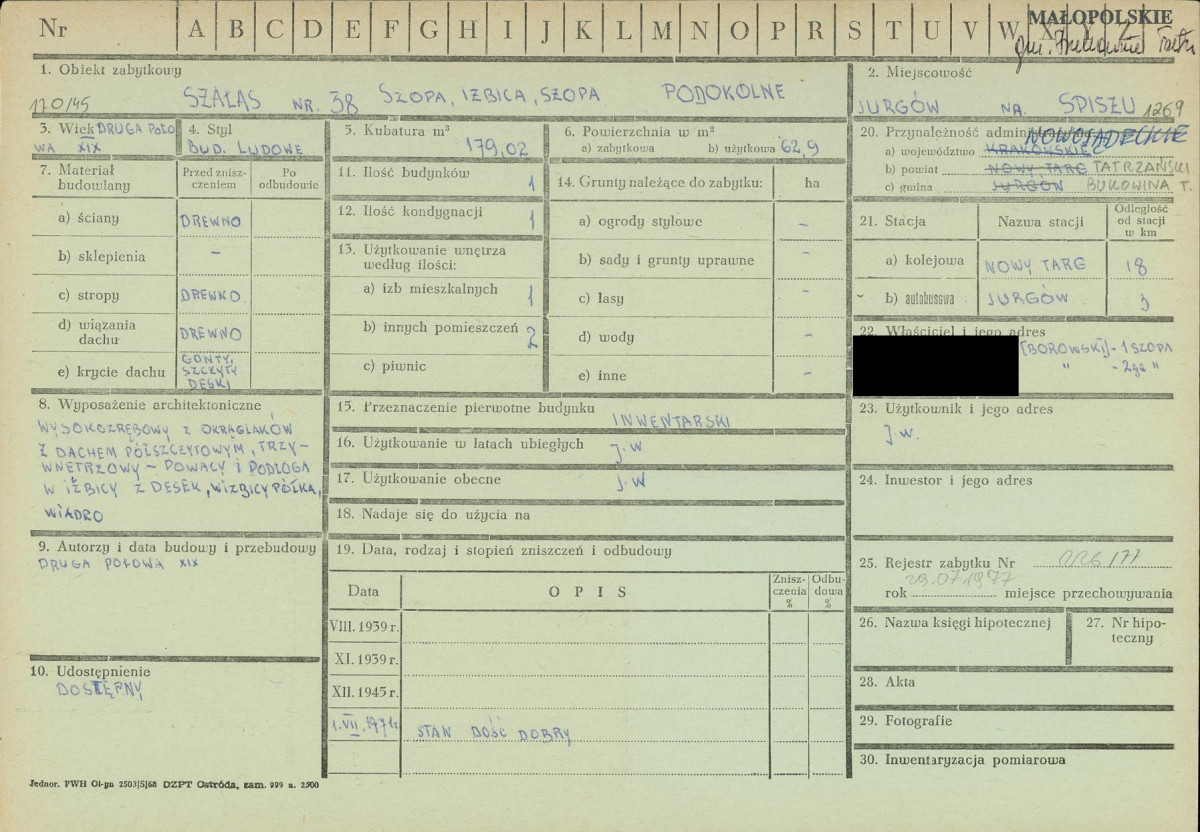 Nr A B C D E F G H I J K L M N O P R S T U V W X Y Z
MAŁOPOLSKIE
gm.
1. Obiekt zabytkowy
170/45 SZAŁAS NR. 38 SZOPA, IZBICA, SZOPA PODOKOLNE
2. Miejscowość
JURGÓW NA SPISZU 1269
3. Wiek DRUGA POŁO
WA XIX
4. Styl
BUD. LUDOWE
5. Kubatura m³
179,02
6. Powierzchnia w m²
a) zabytkowa b) użytkowa 62,9
7. Materiał budowlany
Przed znisz-
czeniem
Po
odbudowie
a) ściany DREWNO
b) sklepienia –
c) stropy DREWNO
d) wiązania
dachu DREWNO
e) krycie dachu GONTY,
SZCZYTY
DESKI
8. Wyposażenie architektoniczne
WYSOKOZRĘBOWY Z OKRĄGLAKÓW
Z DACHEM PÓŁSZCZYTOWYM, TRZY–
WNĘTRZOWY – POWAŁY I PODŁOGA
W IZBICY Z DESEK, W IZBICY PÓŁKA,
WIADRO
9. Autorzy i data budowy i przebudowy
DRUGA POŁOWA XIX
10. Udostępnienie
DOSTĘPNY
11. Ilość budynków 1
12. Ilość kondygnacji 1
13. Użytkowanie wnętrza
według ilości:
a) izb mieszkalnych 1
b) innych pomieszczeń 2
c) piwnic
14. Grunty należące do zabytku: ha
a) ogrody stylowe –
b) sady i grunty uprawne –
c) lasy –
d) wody –
e) inne –
15. Przeznaczenie pierwotne budynku
INWENTARSKI
16. Użytkowanie w latach ubiegłych j.w
17. Użytkowanie obecne j.w
18. Nadaje się do użycia na
19. Data, rodzaj i stopień zniszczeń i odbudowy
Data OPIS Znisz-
czenia
%
Odbu-
dowa
%
VIII. 1939 r.
XI. 1939 r.
XII. 1945 r.
1.VII.1971r STAN DOŚĆ DOBRY
20. Przynależność administracyjna
NOWOSĄDECKIE
a) województwo KRAKOWSKIE
b) powiat NOWY TARG TATRZAŃSKI
c) gmina JURGÓW BUKOWINA T.
21. Stacja Nazwa stacji Odległość
od stacji
w km
a) kolejowa NOWY TARG 18
b) autobusowa JURGÓW 3
22. Właściciel i jego adres
[BOROWSKI] - 1 SZOPA
" - 2ga "
23. Użytkownik i jego adres
J.w.
24. Inwestor i jego adres
25. Rejestr zabytku Nr
29.07.1977
rok miejsce przechowywania
26. Nazwa księgi hipotecznej
27. Nr hipo-
teczny
28. Akta
29. Fotografie
30. Inwentaryzacja pomiarowa
Jednor. PWH Ol-pn 2503/S/68 DZPT Ostróda, zam. 999 n. 2500